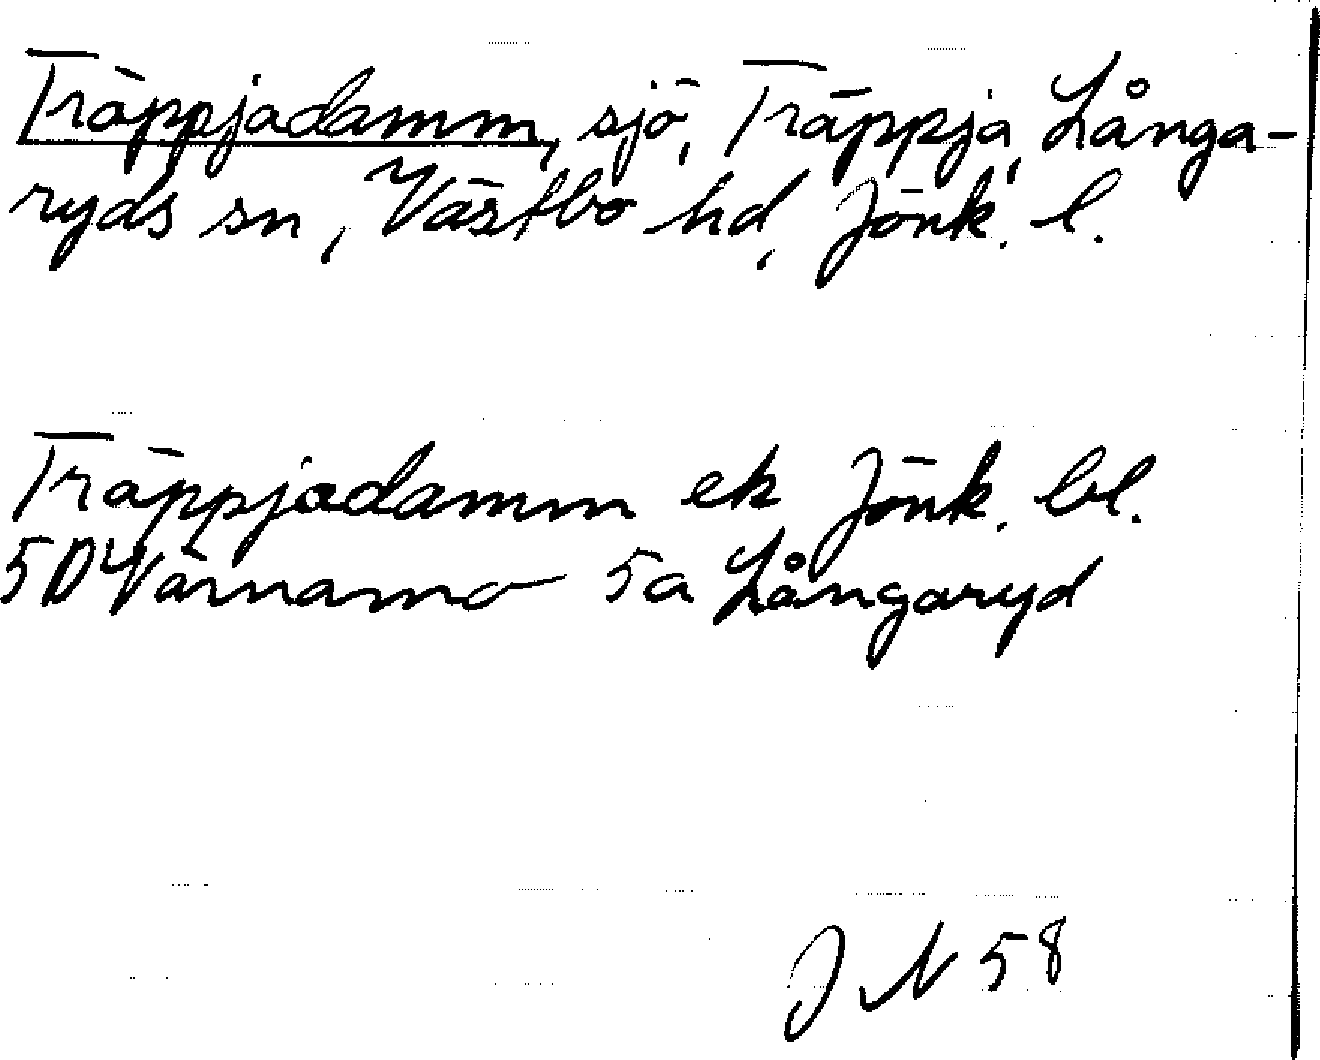 Träppjadamm, sjö, Träppja, Långa-
ryds sn, Västbo hd, Jönk. l.
Träppjadamm ek Jönk. bl.
5D Värnamo 5a Långaryd
JN 58